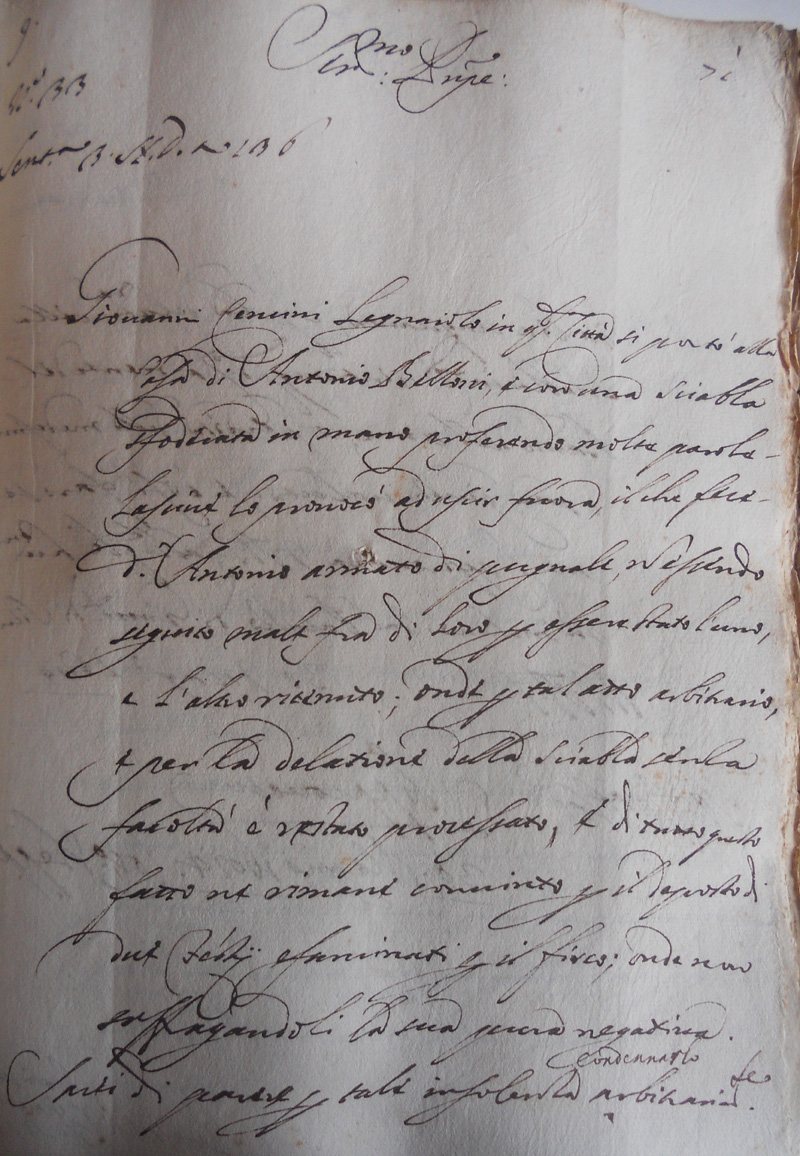 9
N.° 33
Ser.mo Pnpe:
71
136
Giovanni Cencini Legnaiolo in q.ta Città si portò alla
Casa di Antonio Belloni, e con una sciabla
sfoderata in mano proferendo molte parole
lascive lo provocò ad uscir fuora, il che fece
d.° Antonio armato di pugnale, né essendo
seguito male fra di loro p essere stato l'uno,
e l'altro ritenuto; onde p tal atto arbitrario,
e per la delazione della sciabla senza
facoltà è restato processato, e di tutto questo
fatto ne rimane convinto p il deposto di
due Testij esaminati p il fisco; onde non
suffragandoli la sua pura negativa.
condennarlo
Sarei di parere p tale insolenza arbitraria